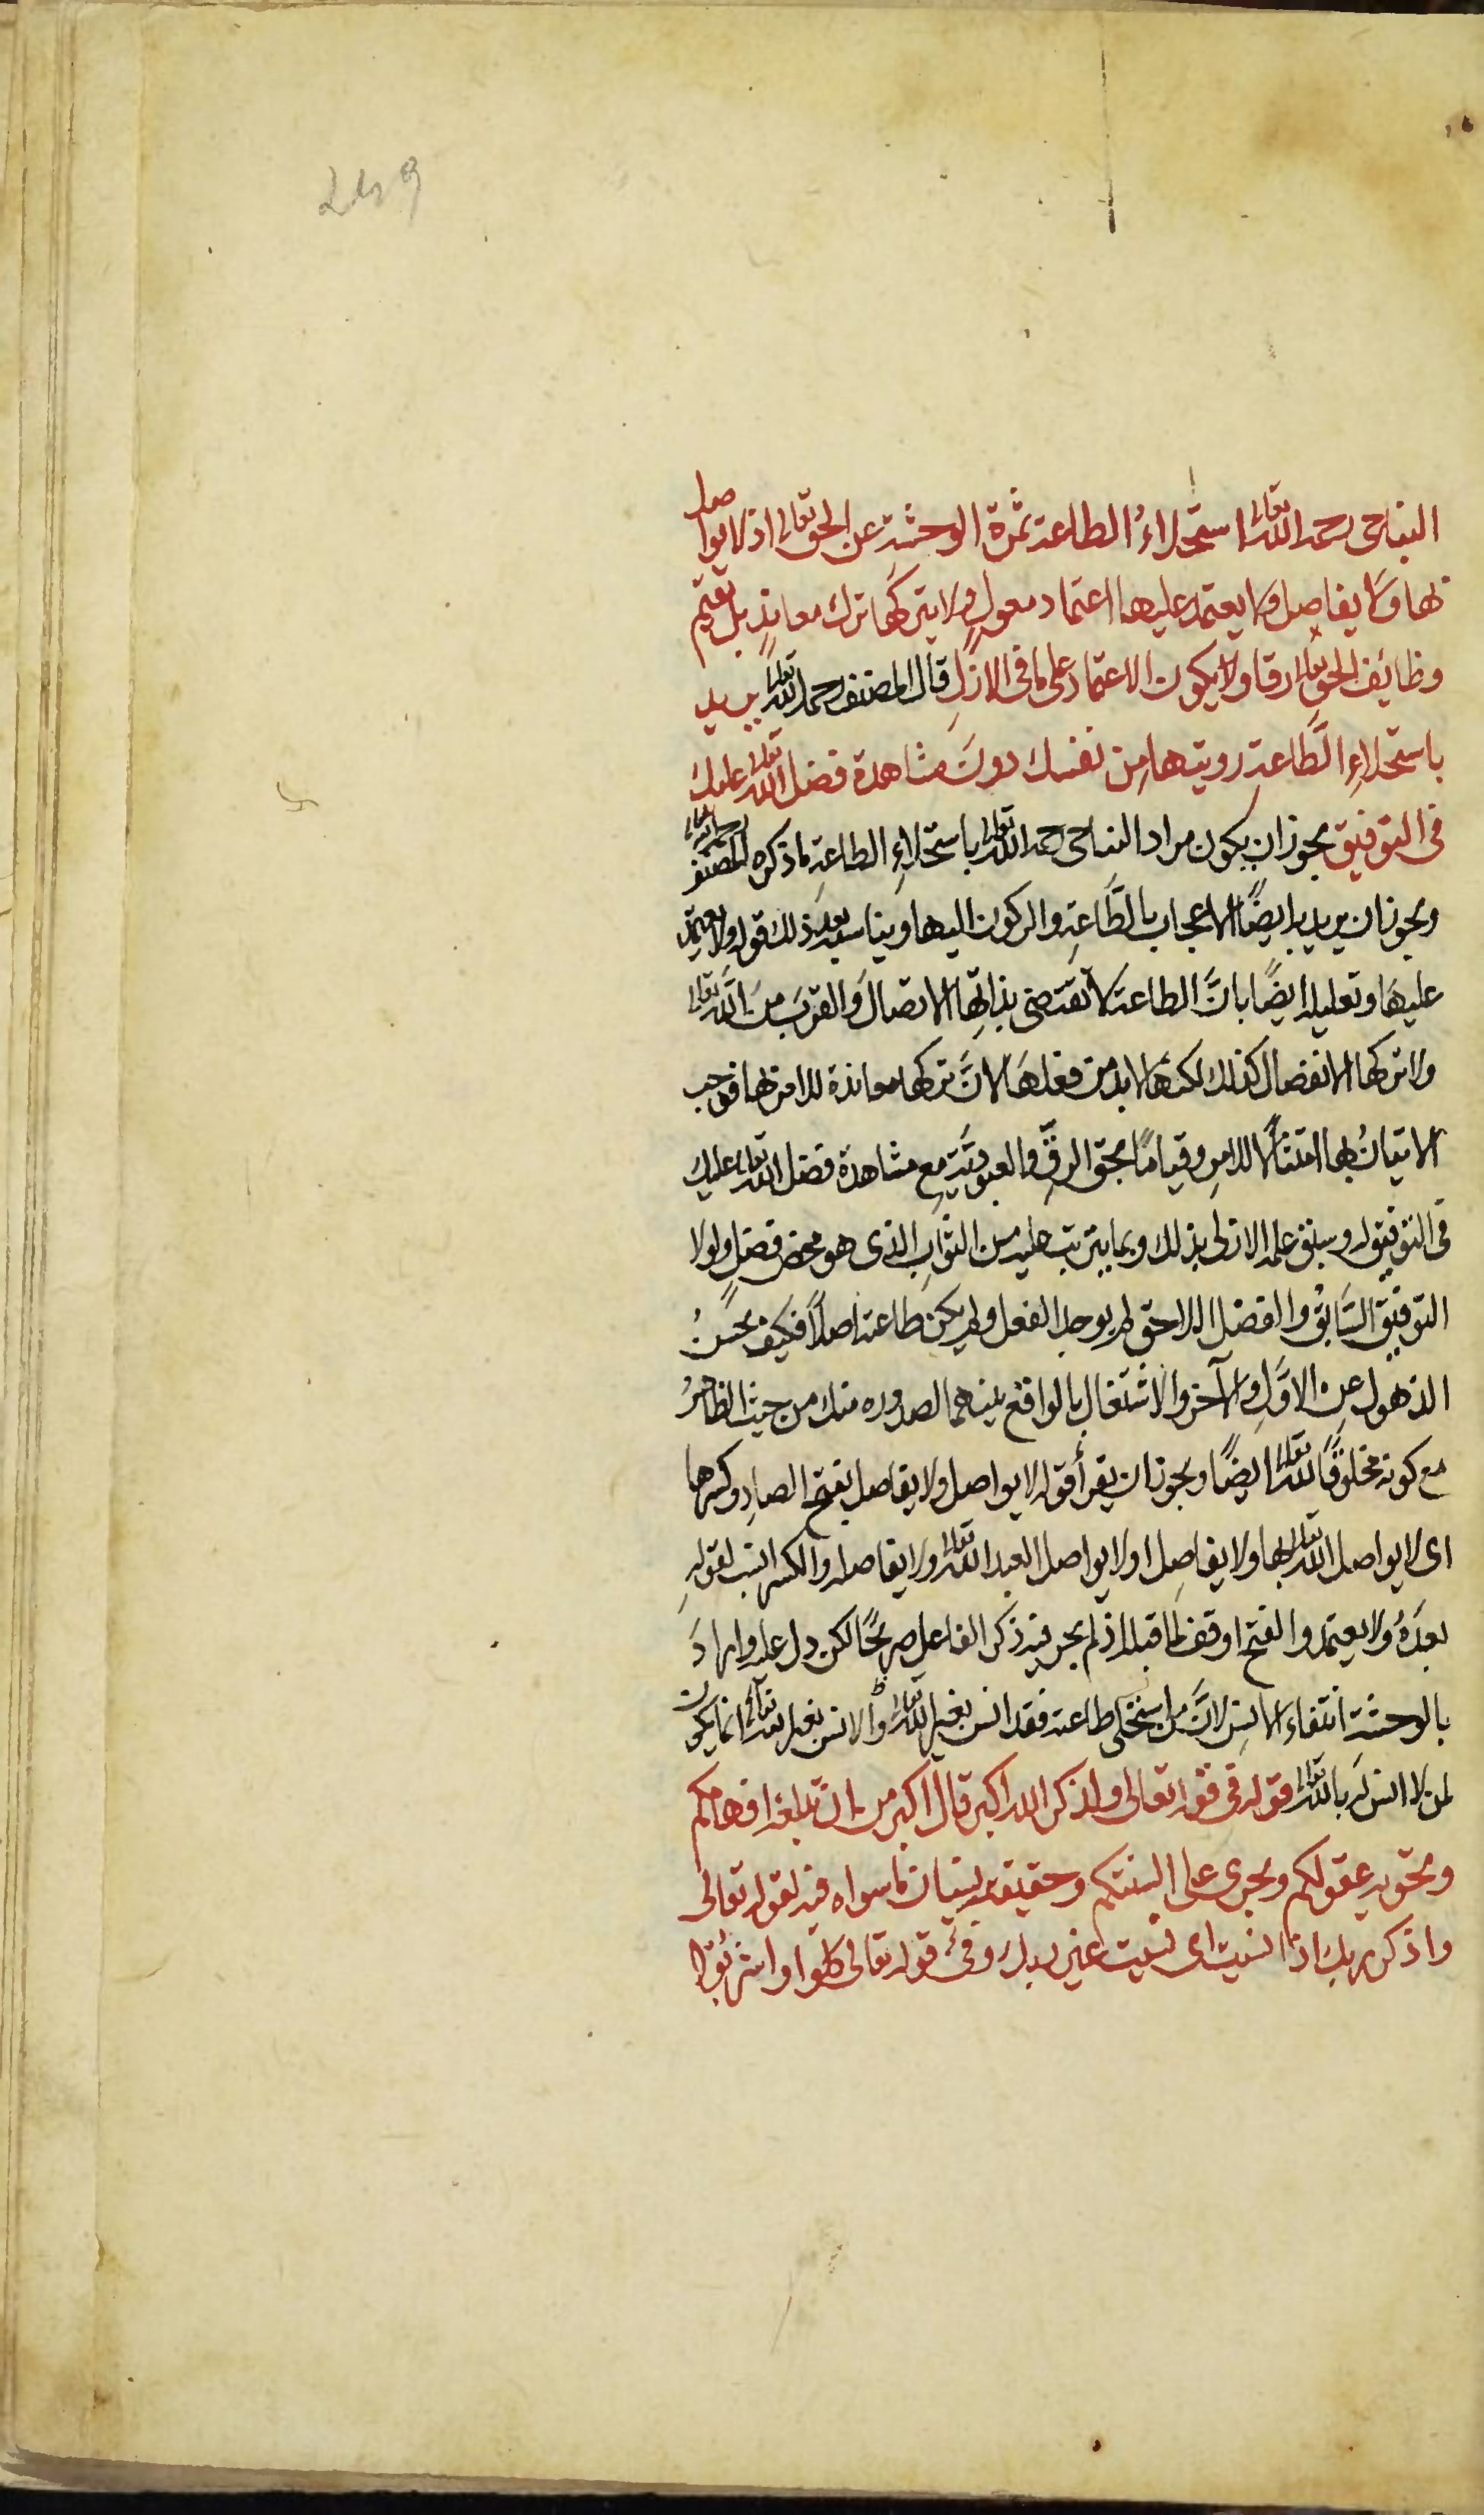 249
النباجى رحمه الله تعالى استحلاءُ الطاعة ثمرة الوحشة عن الحق تعالى اذ لا يواصل
بها ولا يفاصل ولا يعتمد عليها اعتماد معولٍ ولا يتركها ترك معاندٍ بل يقيم
وظائف الحق تعالى رقا ولا يكون الاعتماد على ما فى الازلِ قال المصنف رحمه الله تعالى يريد
باستحلاءِ الطَّاعة رويتها مِن نفسك دونَ مشاهدة فضل الله تعالى عليك
فى التوفيق يجوز ان يكون مراد النباجى رحمه الله تعالى باستحلاءِ الطاعةِ ما ذكره المصنف رحمه الله تعالى
ويجوز ان يريد به ايضًا الاعجاب بالطَّاعةِ والركون اليها ويناسبه بعد ذلك قوله ولا يعتمد
عليهَا وتعليله ايضًا بانَّ الطاعة لا تقتضى بذاتِها الاتصالَ والقربَ منَ الله تعالى
ولا تركها الانفصال كذلك لكنها لا بد من فعلهَا لانَّ تركها معاندة للامر بها فوجب
الاتيانُ بها امتثالًا للامرِ وقيامًا بحق الرقِّ والعبوديَّةِ مع مشاهدة فضل الله تعالى عليك
فى التوفيق له وسبق علمه الازلى بذلك وبما يترتب عليه من الثوابِ الذى هو محض فضلٍ ولولا
التوفيق السَّابقُ والفضل اللاحق لم يوجد الفعل ولم يكن طاعة اصلًا فكيف يحسُنُ
الذهول عن الاوَّلِ والآخر والاشتغال بالواقع بينهما لصدوره منك من حيث الظاهرُ
مع كونه مخلوقًا لله تعالى ايضًا ويجوز ان يقرأ قوله لا يواصل ولا يفاصل بفتح الصادِ وكسرها
اى لا يواصل الله تعالى بها ولا يفاصِل او لا يواصل العبد الله تعالى ولا يفاصله والكسر انسب لقولهِ
بعدَهُ ولا يعتمد والفتح اوفق لما قبله اذ لم يجر فيه ذكر الفاعل صريحًا لكن دل عليه وارادَ
بالوحشة انتفاءَ الانسِ لانَّ من استحلى طاعة فقد انس بغير الله تعالى والانس بغير الله تعالى انما يكون
لمن لا انس لَه بالله تعالى قوله فى قوله تعالى ولذكر الله اكبر قال اكبر من ان تبلغه افهامكم
وتحويه عقولكم ويجرى على السنتكم وحقيقته نسيان ما سواه فيه لقوله تعالى
واذكر ربك اذا نسيت اى نسيت غير ربك وفى قوله تعالى كلوا واشربوا